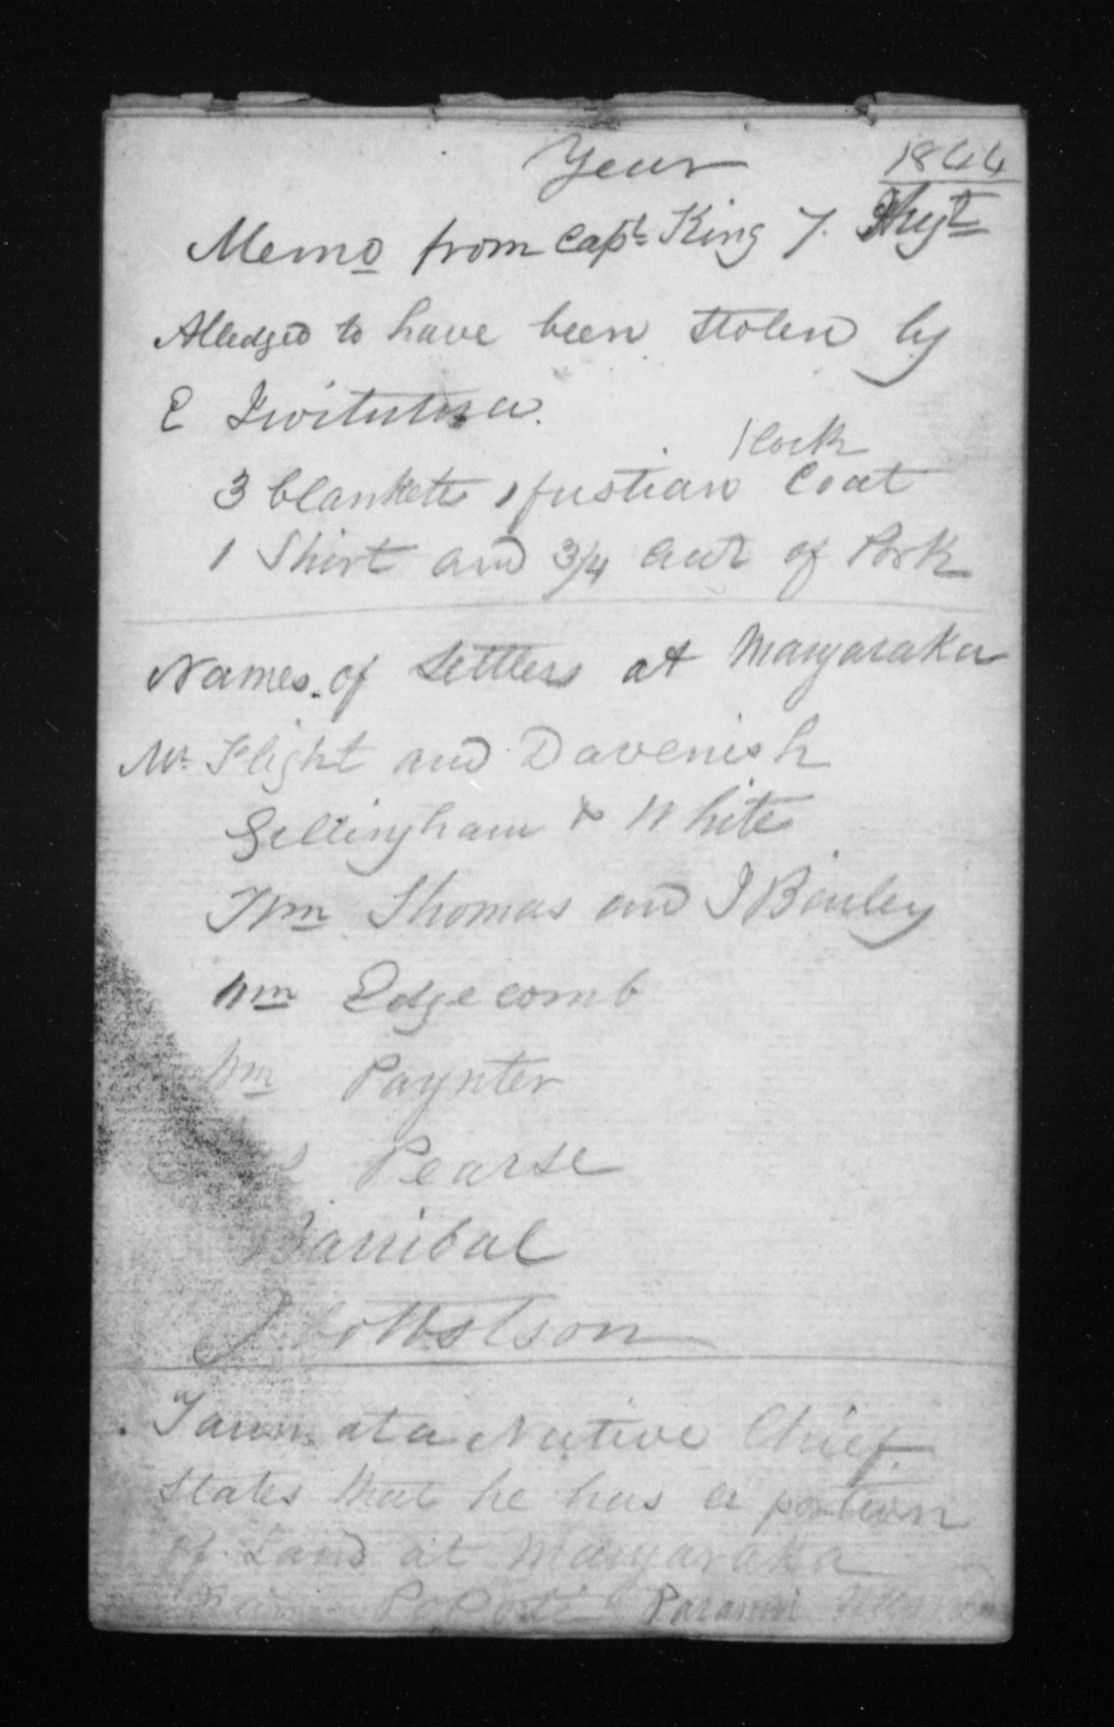 Year 1844
Memo from Capt King 7.
Alledged to have been stolen by
E
1 lock
3 blankets 1 fustian Coat
1 Shirt and 3/4 cwt of Pork
Names of Settlers at Mangaraka
Mr Flight and Davenish
Gillingham & White
Wm Thomas and J Bailey
Wm Edgecomb
Wm Paynter
Pearse
Hannibal
at a Native Chief
States that he has a portion
of Land at Mangaraka